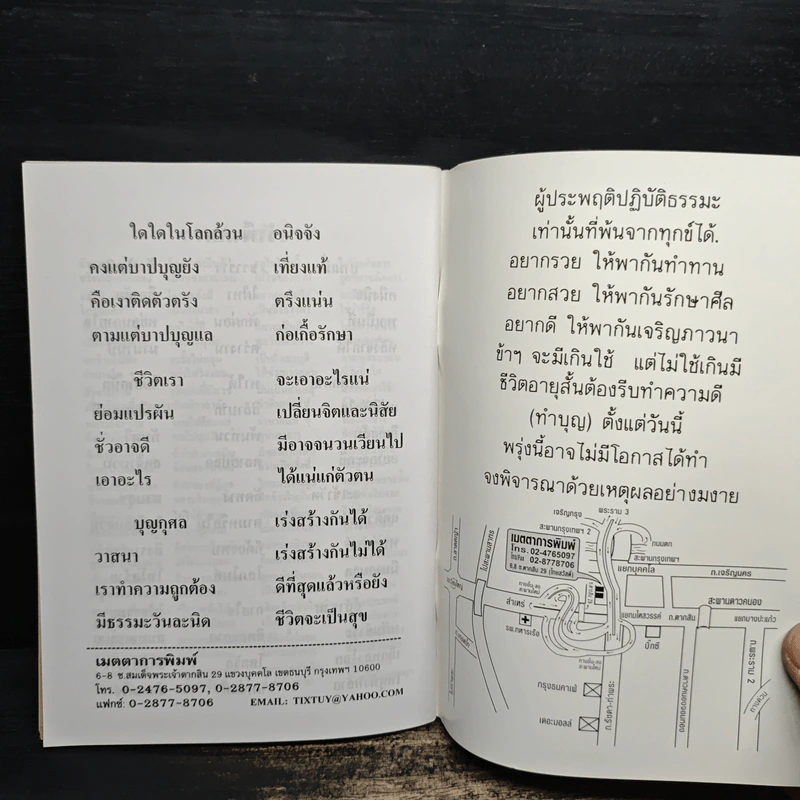 ใดใดในโลกล้วน อนิจจัง
คงแต่บาปบุญยัง เที่ยงแท้
คือเงาติดตัวตรัง ตรึงแน่น
ตามแต่บาปบุญแล ก่อเกื้อรักษา
ชีวิตเรา จะเอาอะไรแน่
ย่อมแปรผัน เปลี่ยนจิตและนิสัย
ชั่วอาจดี มีอาจจนวนเวียนไป
เอาอะไร ได้แน่แก่ตัวตน
บุญกุศล เร่งสร้างกันได้
วาสนา เร่งสร้างกันไม่ได้
เราทำความถูกต้อง ดีที่สุดแล้วหรือยัง
มีธรรมะวันละนิด ชีวิตจะเป็นสุข
เมตตาการพิมพ์
6-8 ซ.สมเด็จพระเจ้าตากสิน 29 แขวงบุคคโล เขตธนบุรี กรุงเทพฯ 10600
โทร. 0-2476-5097, 0-2877-8706
แฟกซ์: 0-2877-8706 EMAIL: TIXTUY@YAHOO.COM
ผู้ประพฤติปฏิบัติธรรมะ
เท่านั้นที่พ้นจากทุกข์ได้.
อยากรวย ให้พากันทำทาน
อยากสวย ให้พากันรักษาศีล
อยากดี ให้พากันเจริญภาวนา
ข้าฯ จะมีเกินใช้ แต่ไม่ใช้เกินมี
ชีวิตอายุสั้นต้องรีบทำความดี
(ทำบุญ) ตั้งแต่วันนี้
พรุ่งนี้อาจไม่มีโอกาสได้ทำ
จงพิจารณาด้วยเหตุผลอย่างมงาย
เจริญกรุง
พระราม 3
สะพานกรุงเทพฯ 2
ถนนตก
สะพานกรุงเทพฯ
เมตตาการพิมพ์
โทร. 02-4765097
โทร/แฟกซ์ 02-8778706
ซ.ส.ตากสิน 29 (โกยสวัสดิ์)
ไปสะพานสาทร
แยกบุคคโล
ถ.เจริญนคร
สะพานดาวคนอง
สำเหร่
แยกมไหสวรรค์
ถ.ตากสิน
แยกบางปะแก้ว
รพ.ทหารเรือ
บิ๊กซี
ถ.พระราม 2
กรุงธนคาเฟ่
เดอะมอลล์
ทางด่วน